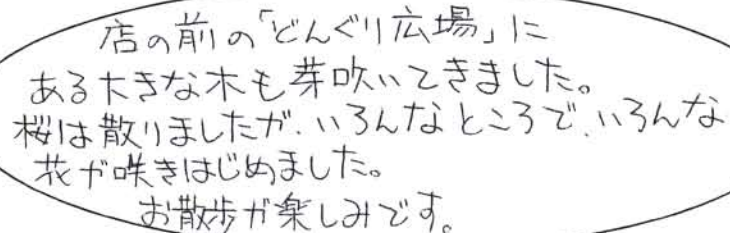 店の前の「どんぐり広場」に
ある大きな木も芽吹いてきました。
桜は散りましたが、いろんなところで、いろんな
花が咲きはじめました。
お散歩が楽しみです。